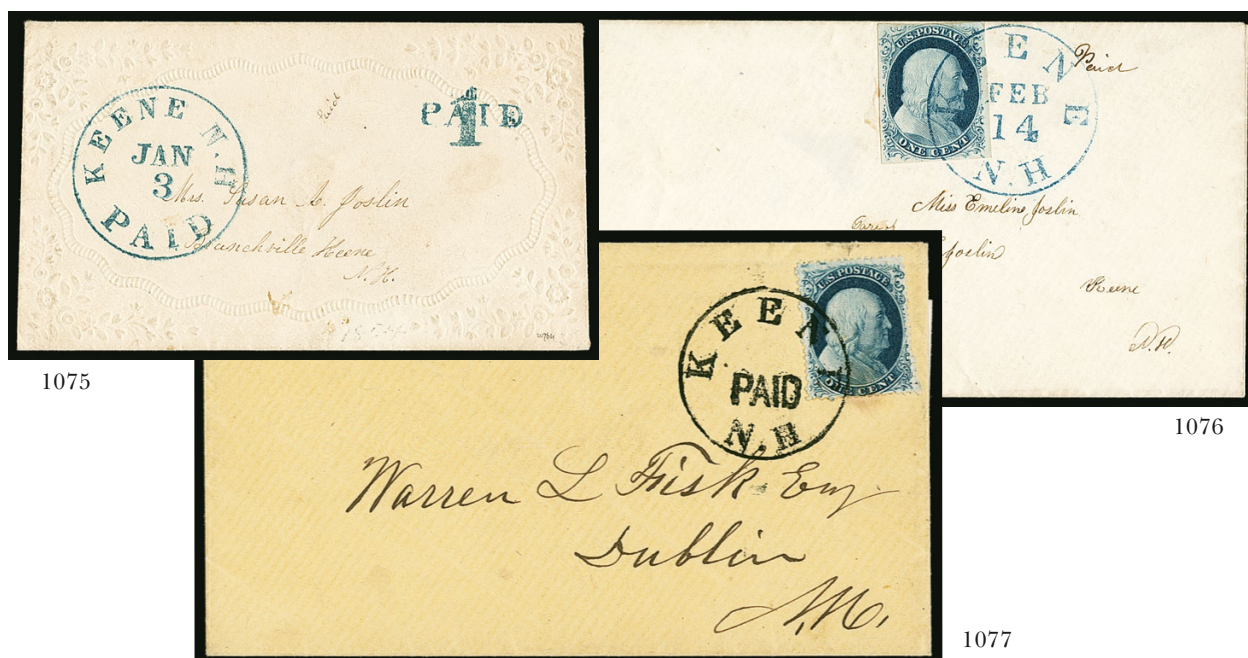 KEENE N.H
JAN
3
PAID
Paid
PAID
1
Mrs. Susan A. Joslin
Branchville Keene
N.H.
1075
U.S. POSTAGE
ONE CENT
KEENE
FEB
14
N.H
Paid
Miss Emeline Joslin
Joslin
Keene
N.H.
1076
KEENE
PAID
N.H
U.S. POSTAGE
ONE CENT
Warren L Fisk Esq
Dublin
N.H.
1077